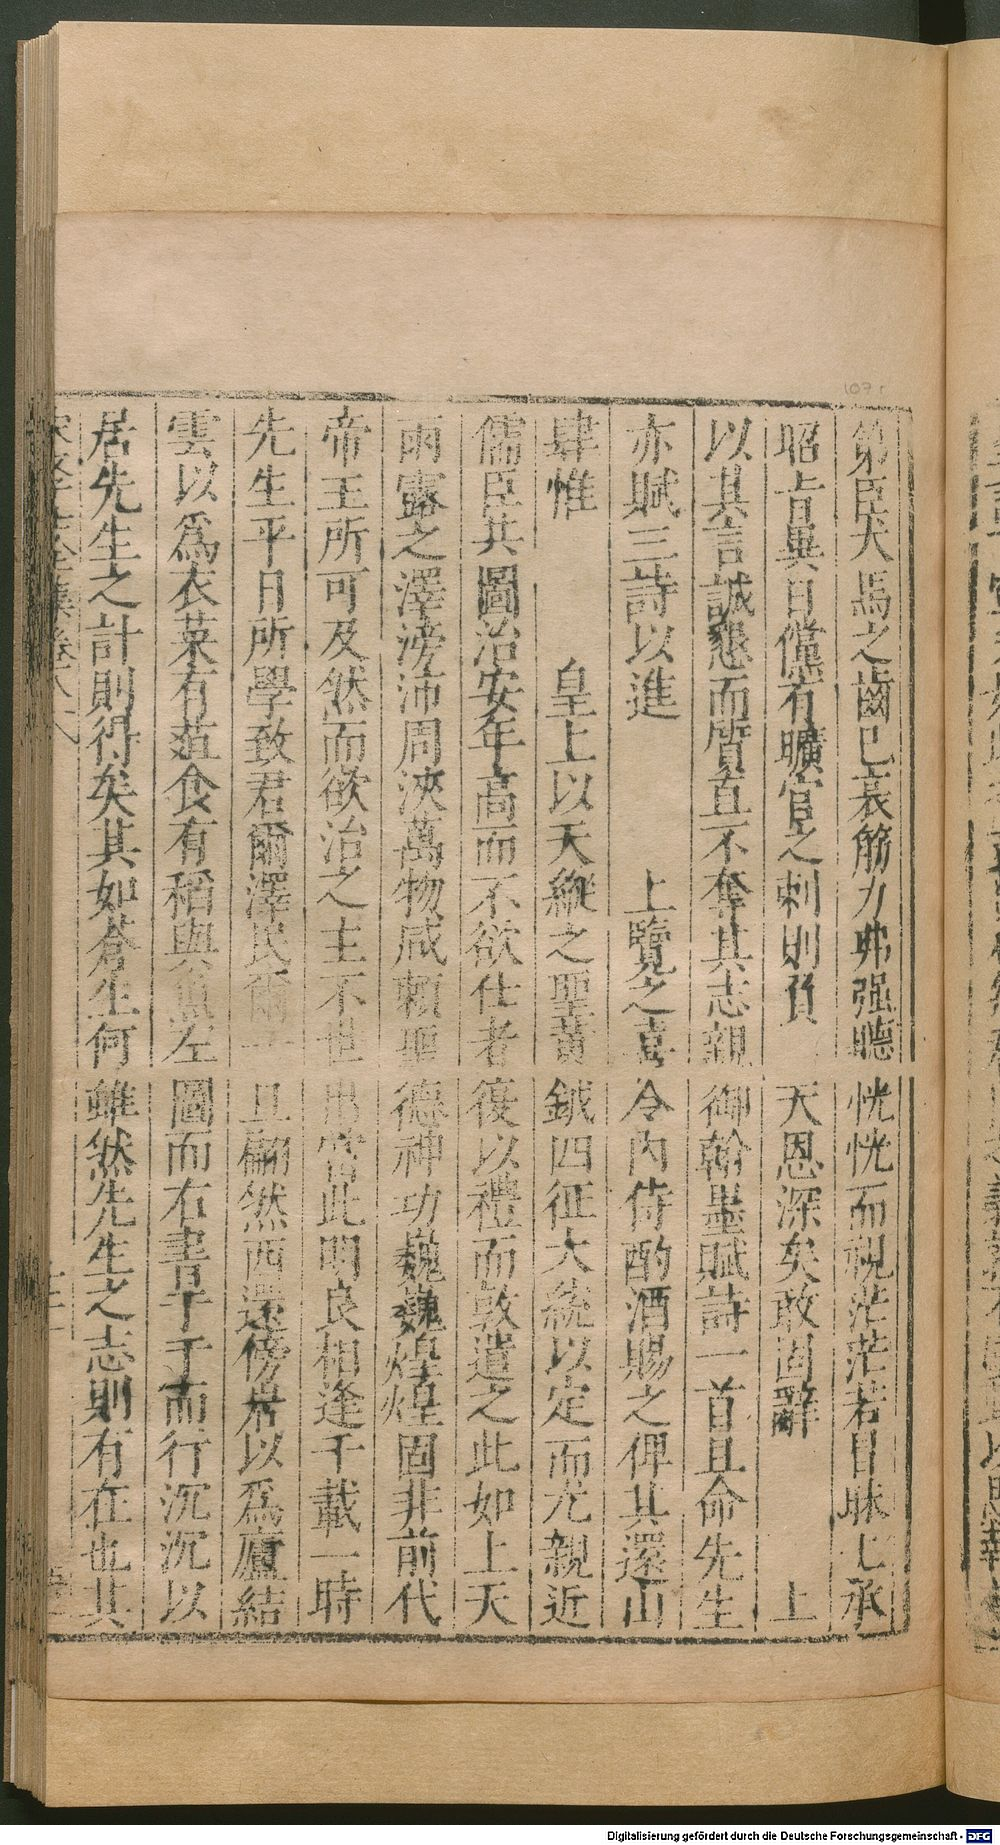 第臣犬馬之齒已衰筋力弗强聽恍恍而視茫茫若目昧上承
昭旨異日儻有曠官之刺則負天恩深矣敢固辭　上
以其言誠懇而質直不奪其志親御翰墨賦詩一首且命先生
亦賦三詩以進　上覽之喜令內侍酌酒賜之俾其還山
肆惟　皇上以天縱之聖黃鉞四征大統以定而尤親近
儒臣共圖治安年高而不欲仕者復以禮而敦遣之此如上天
雨露之澤滂沛周浹萬物咸賴聖德神功巍巍煌煌固非前代
帝王所可及然而欲治之主不世出當此明良相逢千載一時
先生平日所學致君爾澤民爾一旦翩然西還傍岩以爲廬結
雲以爲衣菜有菹食有稻與魚左圖而右書于于而行沉沉以
居先生之計則得矣其如蒼生何雖然先生之志則有在也其
107 r
Digitalisierung gefördert durch die Deutsche Forschungsgemeinschaft - DFG